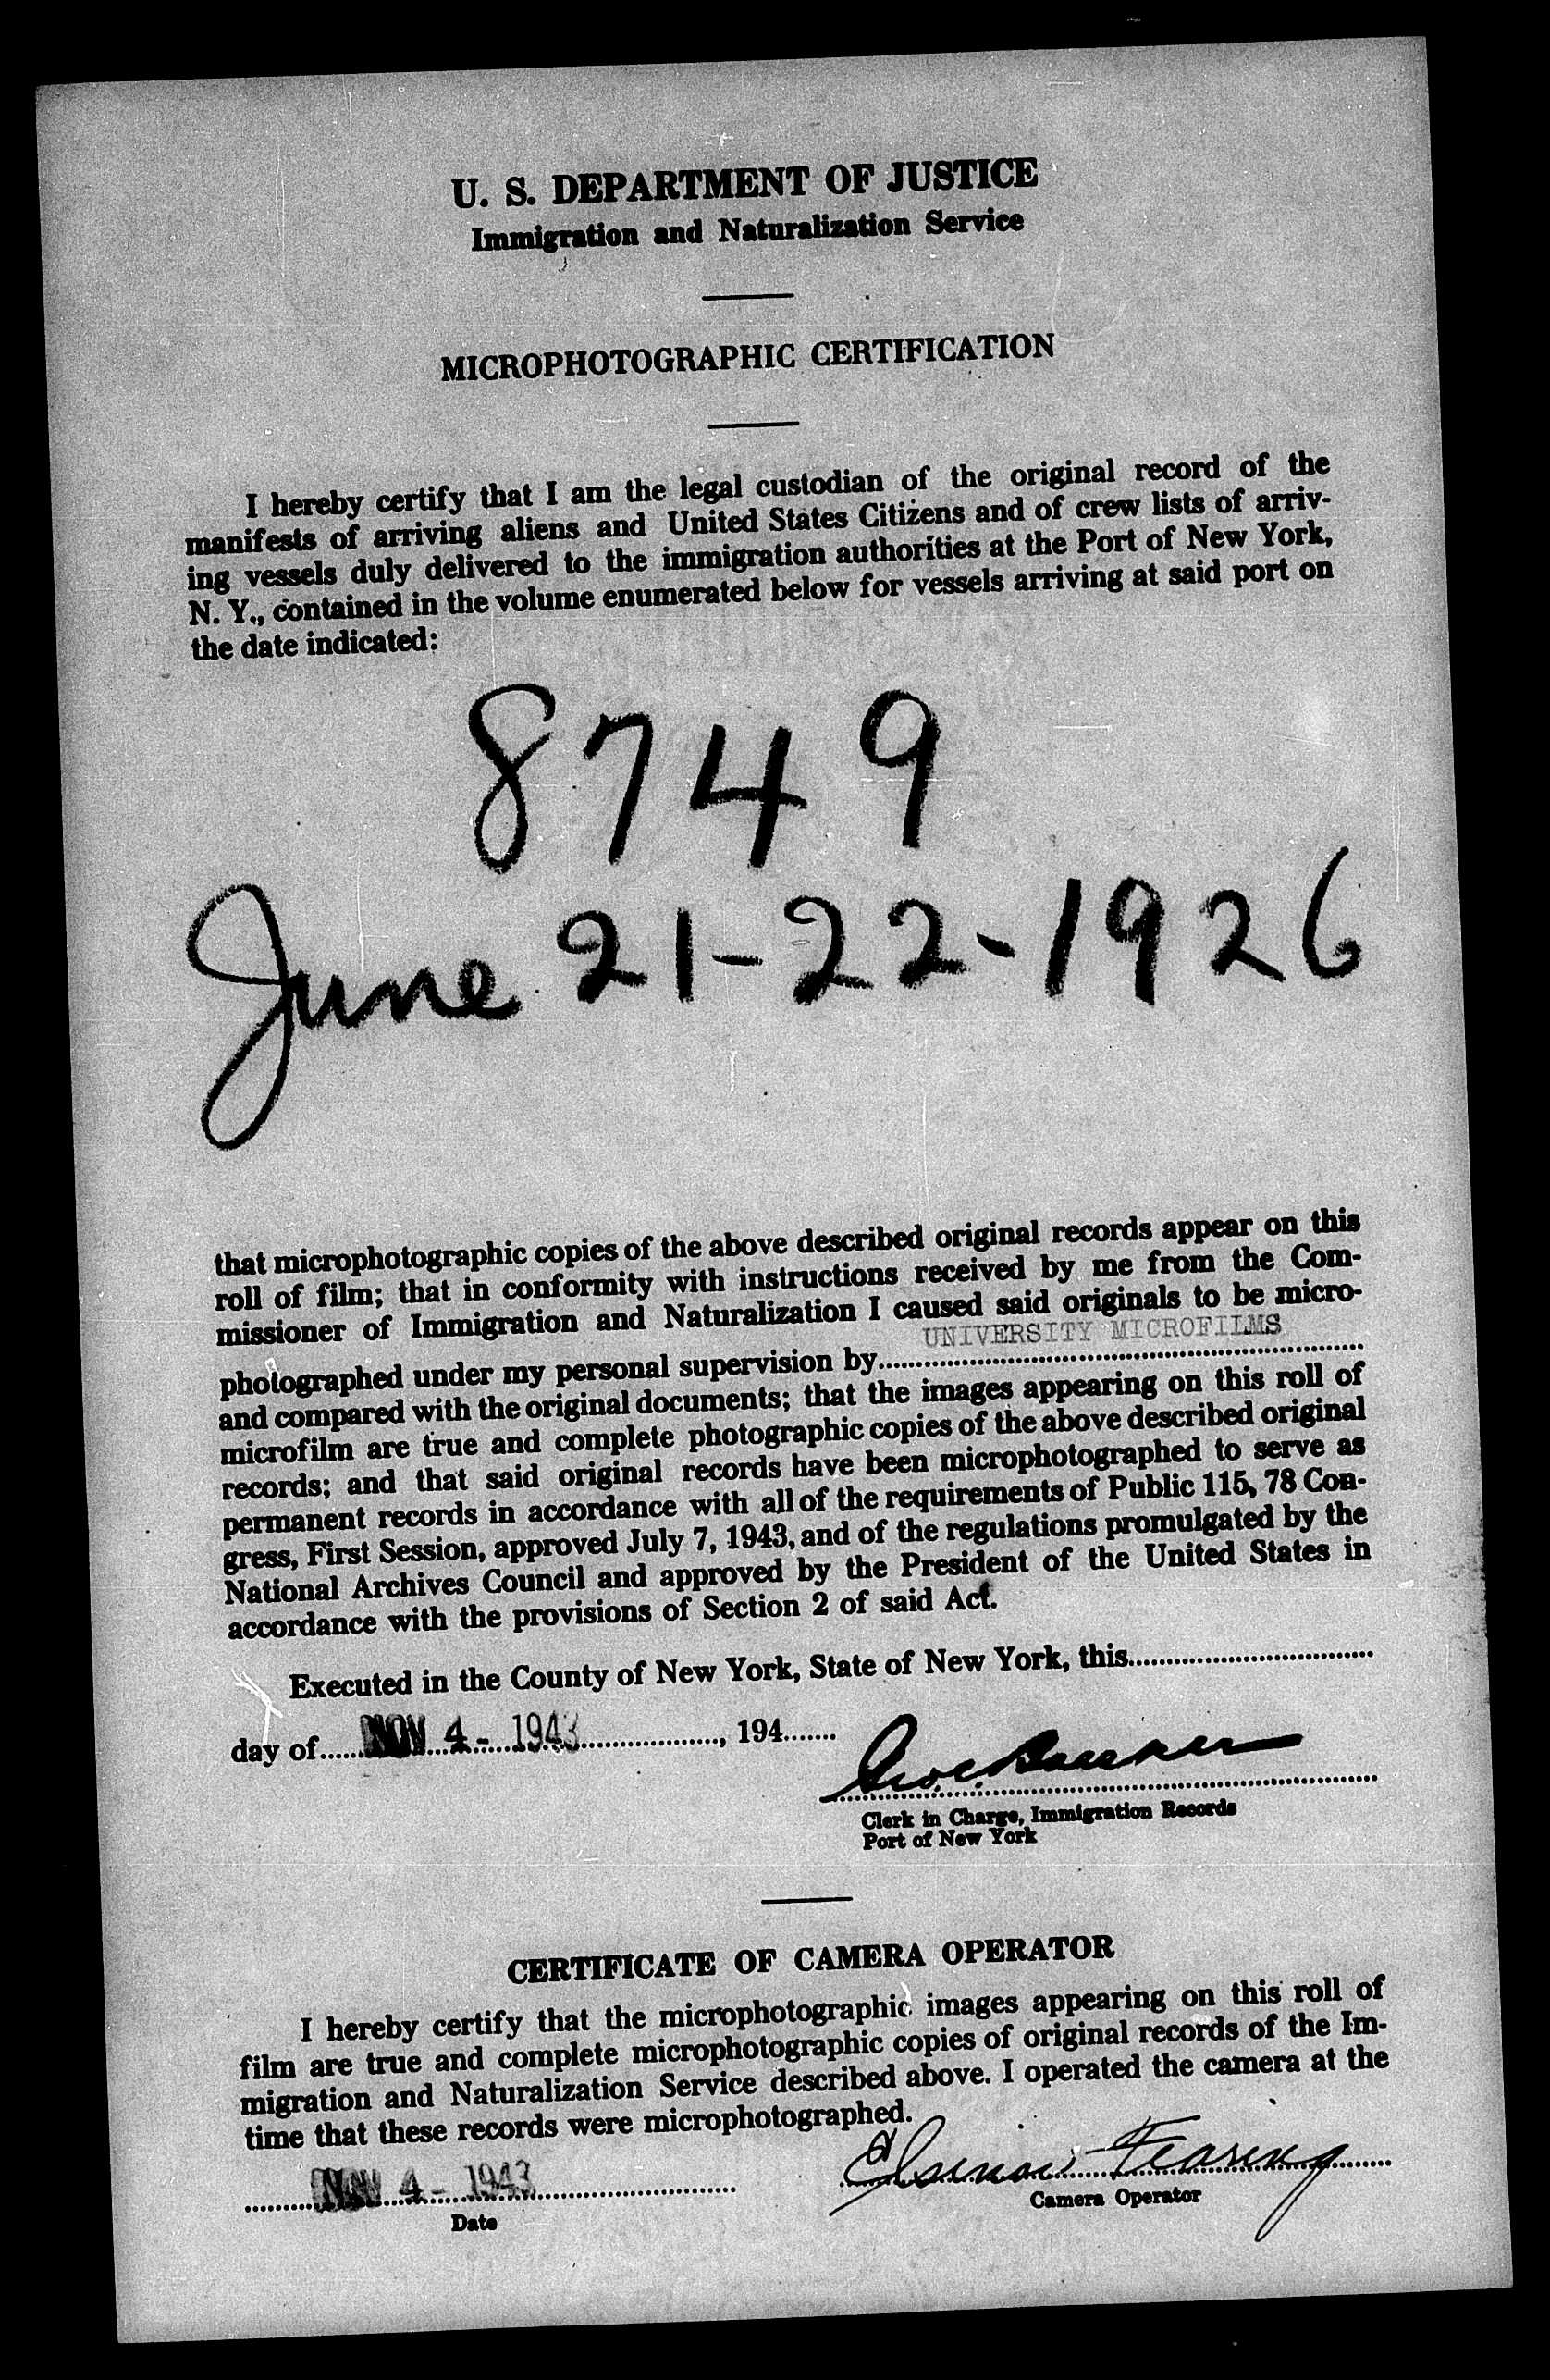 U. S. DEPARTMENT OF JUSTICE
Immigration and Naturalization Service
MICROPHOTOGRAPHIC CERTIFICATION
I hereby certify that I am the legal custodian of the original record of the
manifests of arriving aliens and United States Citizens and of crew lists of arriv-
ing vessels duly delivered to the immigration authorities at the Port of New York,
N. Y., contained in the volume enumerated below for vessels arriving at said port on
the date indicated:
8749
June 21-22-1926
that microphotographic copies of the above described original records appear on this
roll of film; that in conformity with instructions received by me from the Com-
missioner of Immigration and Naturalization I caused said originals to be micro-
UNIVERSITY MICROFILMS
photographed under my personal supervision by
and compared with the original documents; that the images appearing on this roll of
microfilm are true and complete photographic copies of the above described original
records; and that said original records have been microphotographed to serve as
permanent records in accordance with all of the requirements of Public 115, 78 Con-
gress, First Session, approved July 7, 1943, and of the regulations promulgated by the
National Archives Council and approved by the President of the United States in
accordance with the provisions of Section 2 of said Act.
Executed in the County of New York, State of New York, this
day of NOV 4 - 1943, 194
Clerk in Charge, Immigration Records
Port of New York
CERTIFICATE OF CAMERA OPERATOR
I hereby certify that the microphotographic images appearing on this roll of
film are true and complete microphotographic copies of original records of the Im-
migration and Naturalization Service described above. I operated the camera at the
time that these records were microphotographed.
NOV 4 - 1943
Camera Operator
Date